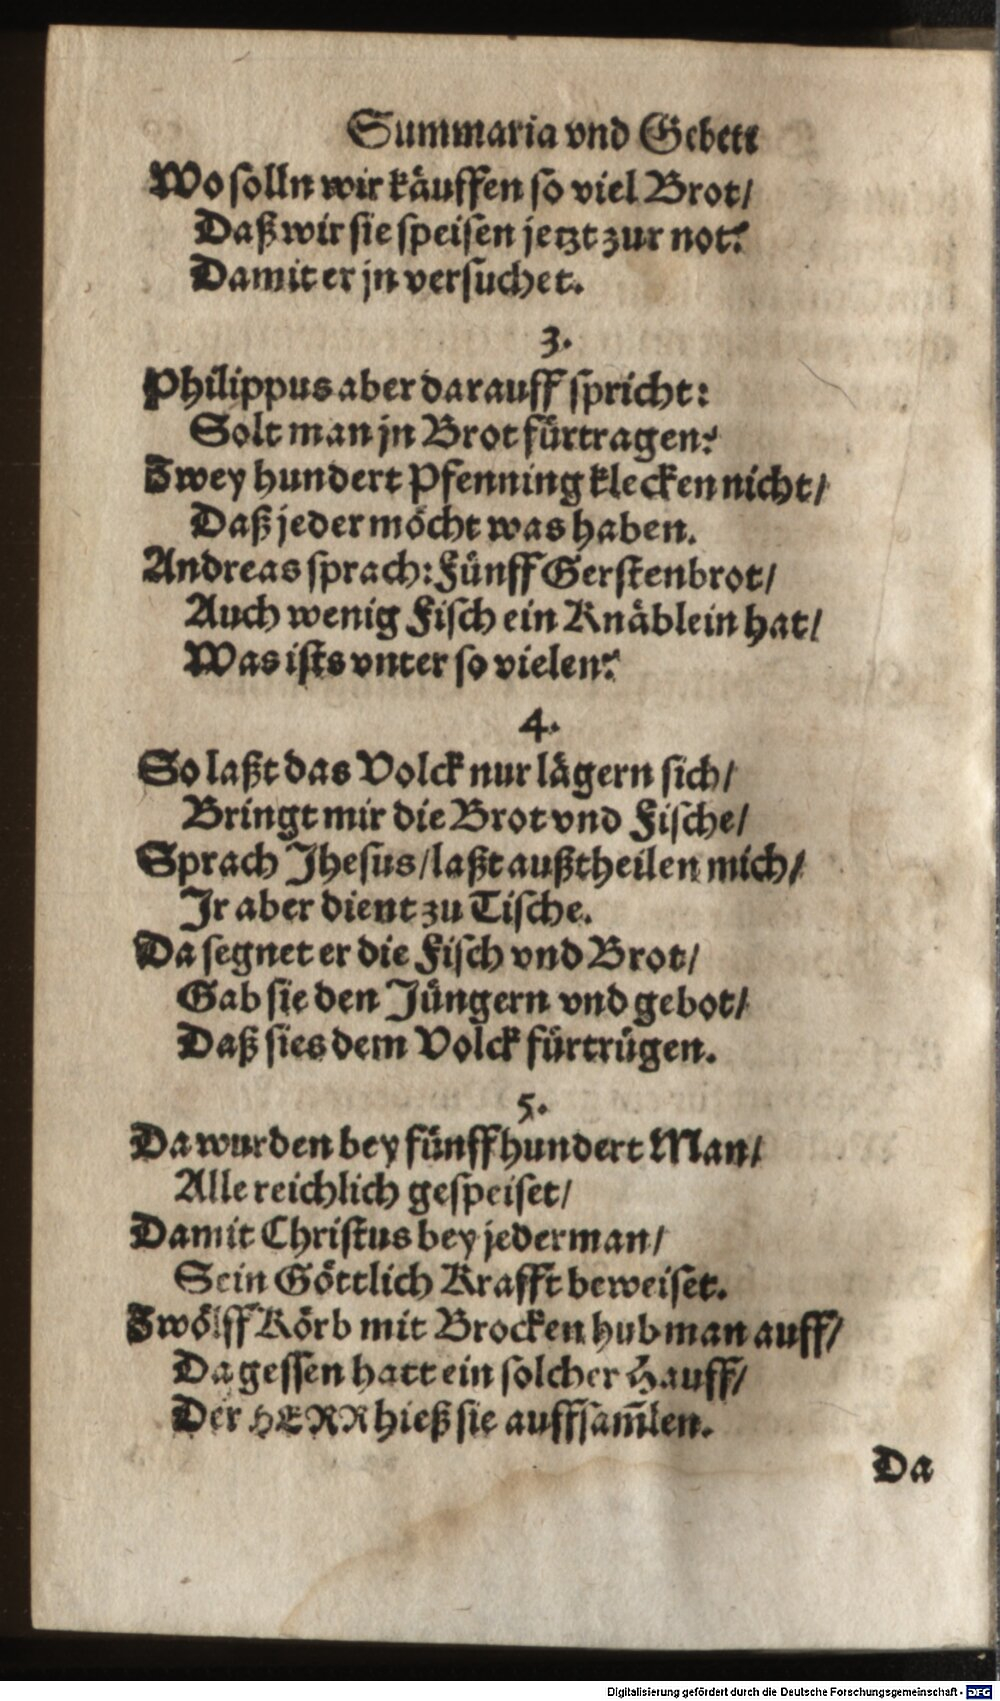 Summaria vnd Gebett
Wo solln wir käuffen so viel Brot/
Daß wir sie speisen jetzt zur not?
Damit er jn versuchet.
3.
Philippus aber darauff spricht:
Solt man jn Brot fürtragen?
Zwey hundert Pfenning klecken nicht/
Daß jeder möcht was haben.
Andreas sprach: Fünff Gerstenbrot/
Auch wenig Fisch ein Knäblein hat/
Was ists vnter so vielen?
4.
So laßt das Volck nur lägern sich/
Bringt mir die Brot vnd Fische/
Sprach Jhesus/ laßt außtheilen mich/
Jr aber dient zu Tische.
Da segnet er die Fisch vnd Brot/
Gab sie den Jüngern vnd gebot/
Daß sies dem Volck fürtrügen.
5.
Da wurden bey fünffhundert Man/
Alle reichlich gespeiset/
Damit Christus bey jederman/
Sein Göttlich Krafft beweiset.
Zwölff Körb mit Brocken hub man auff/
Da gessen hatt ein solcher Hauff/
Der HERR hieß sie auffsam̃len.
Da
Digitalisierung gefördert durch die Deutsche Forschungsgemeinschaft - DFG